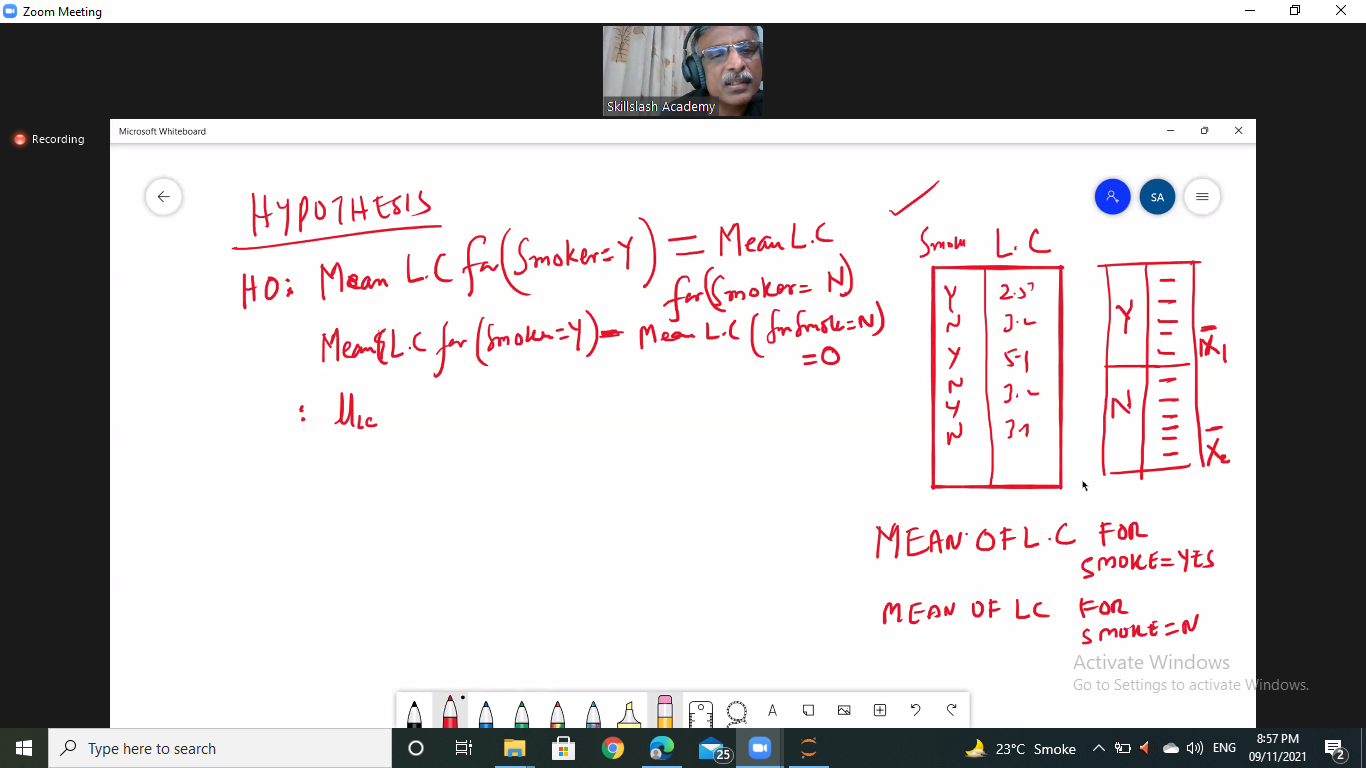 Zoom Meeting
Skillslash Academy
Recording
Microsoft Whiteboard
SA
HYPOTHESIS
H0: Mean L.C for (Smoker=Y) = Mean L.C
for (Smoker= N)
Mean L.C for (Smoker=Y) - Mean L.C (for Smok=N)
=0
: μLC
Smoke L.C
Y
N 3.2
Y 5.1
N 3.2
Y
N 3.1
Y
X̄1
N
X̄2
MEAN OF L.C FOR
SMOKE=YES
MEAN OF LC FOR
SMOKE=N
Activate Windows
Go to Settings to activate Windows.
A
Type here to search
25
23°C Smoke
ENG
8:57 PM
09/11/2021
2